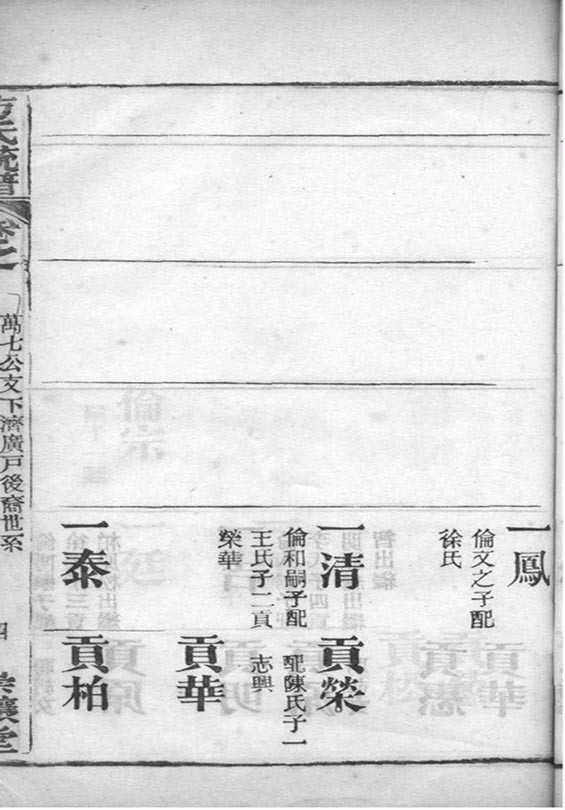 一鳳
倫文之子配
徐氏
一清
倫和嗣子配
王氏子二貢
榮華
貢榮
配陳氏子一
志興
貢華
一泰
貢柏
方氏統譜
卷之一
萬七公支下濟廣戶後裔世系
四